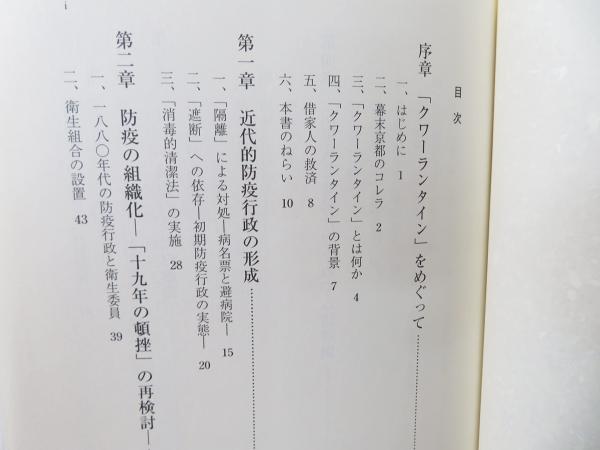 目次
序章 「クワーランタイン」をめぐって………………
一、はじめに 1
二、幕末京都のコレラ 2
三、「クワーランタイン」とは何か 4
四、「クワーランタイン」の背景 7
五、借家人の救済 8
六、本書のねらい 10
第一章 近代的防疫行政の形成………………
一、「隔離」による対処―病名票と避病院― 15
二、「遮断」への依存―初期防疫行政の実態― 20
三、「消毒的清潔法」の実施 28
第二章 防疫の組織化―「十九年の頓挫」の再検討―
一、一八八〇年代の防疫行政と衛生委員 39
二、衛生組合の設置 43
i